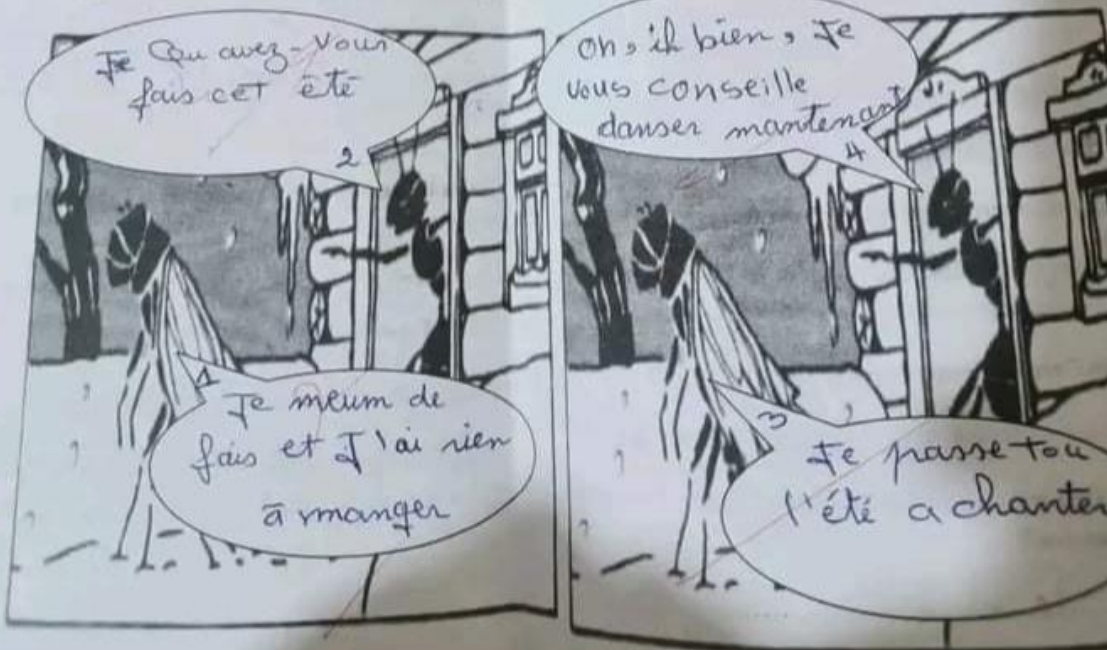 Je Qu avez-vous
fais cet été
2
1
Je meum de
fais et J'ai rien
à manger
oh, ih bien, Je
vous conseille
danser mantenant
4
3
Je passe tou
l'été a chanter